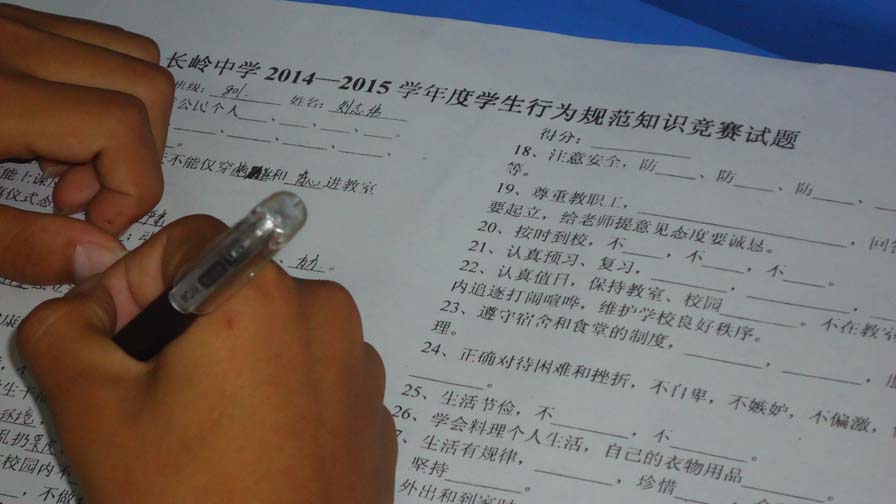 长岭中学2014—2015学年度学生行为规范知识竞赛试题
班级: 姓名: 刘志伟
公民个人____、____、____、____。
不能仅穿 和 进教室
仪式
得分:
18、注意安全，防____、防____、防____、
等。
19、尊重教职工，____，回答
要起立，给老师提意见态度要诚恳。
20、按时到校，不____，不____，不____。
21、认真预习、复习，____，____，
22、认真值日，保持教室、校园____。不在教室
内追逐打闹喧哗，维护学校良好秩序。
23、遵守宿舍和食堂的制度，____，____，
理。
24、正确对待困难和挫折，不自卑，不嫉妒，不偏激，
____。
25、生活节俭，不____，不____。
26、学会料理个人生活，自己的衣物用品____。
7、生活有规律，____，珍惜____，
坚持____。
外出和到家时
乱扔果皮
校园内不
，不做